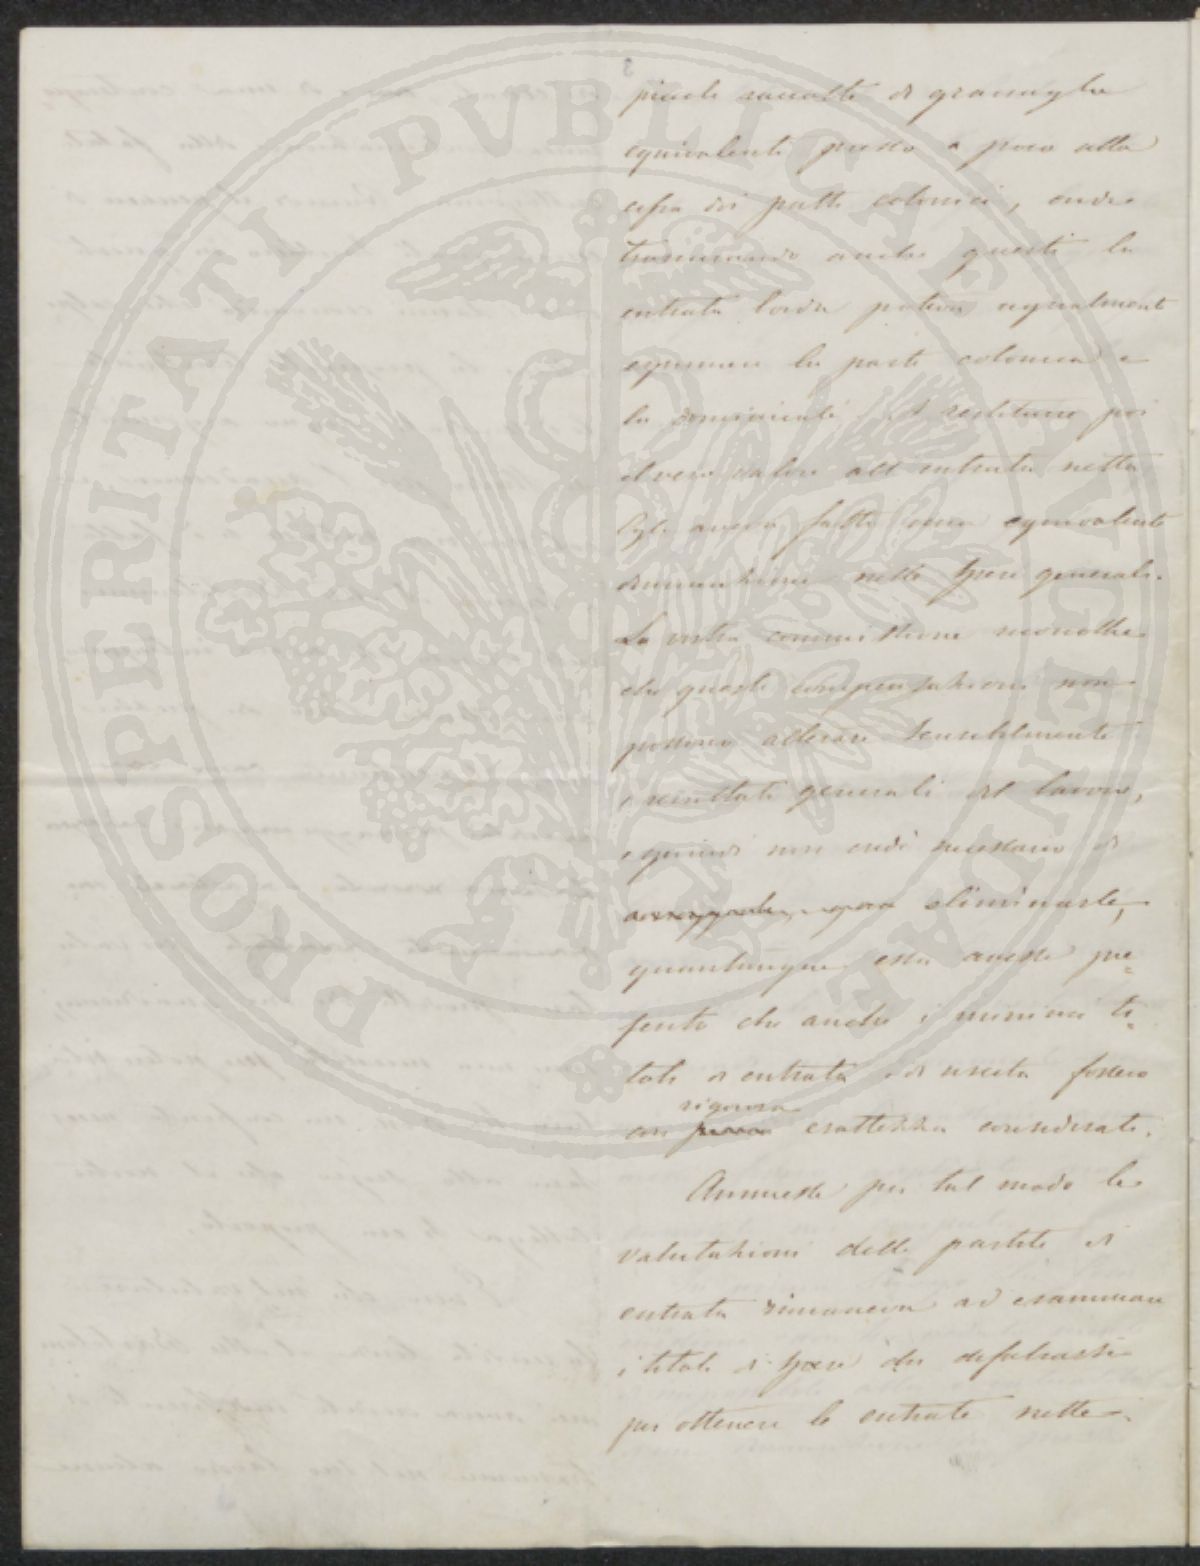 PROSPERITATI PVBLICAE AVGENDAE
piccole raccolte di granaglie
equivalenti presso a poco alla
cifra dei patti colonici, onde
trascurando anche questi la
entrata lorda poteva egualmente
esprimere la parte colonica e
la dominicale. A restituire poi
il vero valore all entrata netta
Egli aveva fatto una equivalente
diminuzione nelle spese generali.
La vostra commissione riconobbe
che queste compensazioni non
possono alterare sensibilmente
i resultati generali del lavoro,
e quindi non credè necessario di
eliminarle,
quantunque essa avesse pre=
ferito che anche i minimi ti=
toli di entrata e di uscita fossero
rigorosa
con esattezza considerati.
Ammesse per tal modo le
valutazioni delle partite di
entrata rimaneva ad esaminare
i titoli di spese da defalcarsi
per ottenere le entrate nette.